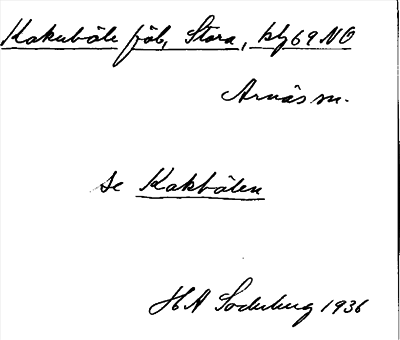 Kakuböle fäb, Stora, kbl 69 NO
Arnäs sn.
se Kakbölen
H A Söderberg 1936